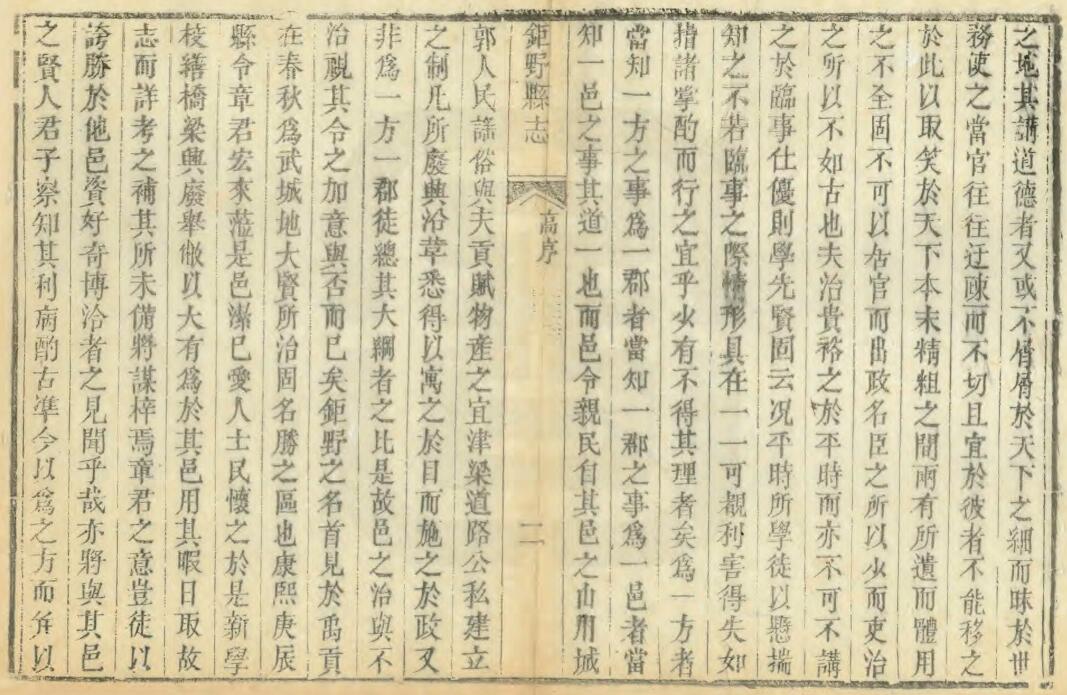 之地其講道德者又或不屑屑於天下之細而昧於世
務使之當官往往迂疎而不切且宜於彼者不能移之
於此以取笑於天下本末精粗之間兩有所遺而體用
之不全固不可以居官而出政名臣之所以少而吏治
之所以不如古也夫治貴裕之於平時而亦不可不講
之於臨事仕優則學先賢固云况平時所學徒以懸揣
知之不若臨事之際情形具在一一可觀利害得失如
指諸掌酌而行之宜乎少有不得其理者矣爲一方者
當知一方之事爲一郡者當知一郡之事爲一邑者當
知一邑之事其道一也而邑令親民自其邑之山川城
鉅野縣志
高序
二
郭人民謡俗與夫貢賦物産之宜津梁道路公私建立
之制凡所廢興沿革悉得以寓之於目而施之於政又
非爲一方一郡徒總其大綱者之比是故邑之治與不
治視其令之加意與否而已矣鉅野之名首見於禹貢
在春秋爲武城地大賢所治固名勝之區也康熙庚辰
縣令章君宏來蒞是邑潔已愛人士民懷之於是新學
校繕橋梁興廢舉倣以大有爲於其邑用其暇日取故
志而詳考之補其所未備將謀梓焉章君之意豈徒以
誇勝於他邑資好奇博洽者之見聞乎哉亦將與其邑
之賢人君子察知其利病酌古準今以爲之方而羙以